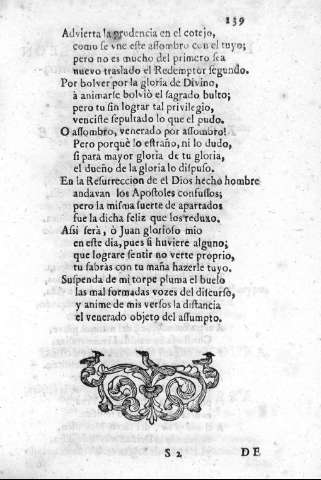 139
Advierta la prudencia en el cotejo,
como se vne este assombro con el tuyo;
pero no es mucho del primero sea
nuevo traslado el Redemptor segundo.
Por bolver por la gloria de Divino,
à animarse bolviò el sagrado bulto;
pero tu sin lograr tal privilegio,
venciste sepultado lo que el pudo.
O assombro, venerado por assombro!
Pero porquè lo estraño, ni lo dudo,
si para mayor gloria de tu gloria,
el dueño de la gloria lo dispuso.
En la Resurreccion de el Dios hecho hombre
andavan los Apostoles confussos;
pero la misma suerte de apartados
fue la dicha feliz que los reduxo.
Assi serà, ò Juan glorioso mio
en este dia, pues si huviere alguno;
que lograre sentir no verte proprio,
tu sabras con tu maña hazerle tuyo.
Suspenda de mi torpe pluma el buelo
las mal formadas vozes del discurso,
y anime de mis versos la distancia
el venerado objeto del assumpto.
S 2 DE